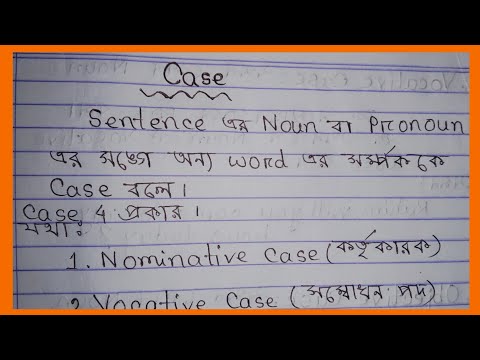 Case
Sentence এর Noun বা Pronoun
এর সঙ্গে অন্য word এর সর্ম্পককে
Case বলে।
Case 4 প্রকার।
যথা:
1. Nominative Case (কর্তৃকারক)
2. Vocative Case (সম্বোধন পদ)